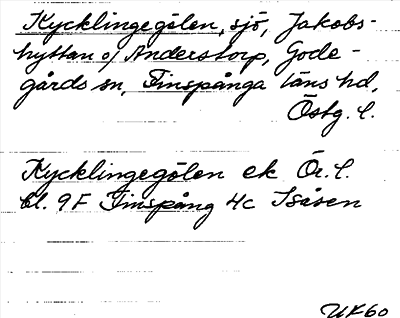 Kycklingegölen, sjö, Jakobs-
hyttan o, Anderstorp, Gode-
gårds sn, Finspånga läns hd,
Östg. l.
Kycklingegölen ek Ör. l.
bl. 9F Finspång 4c Isåsen
UF60